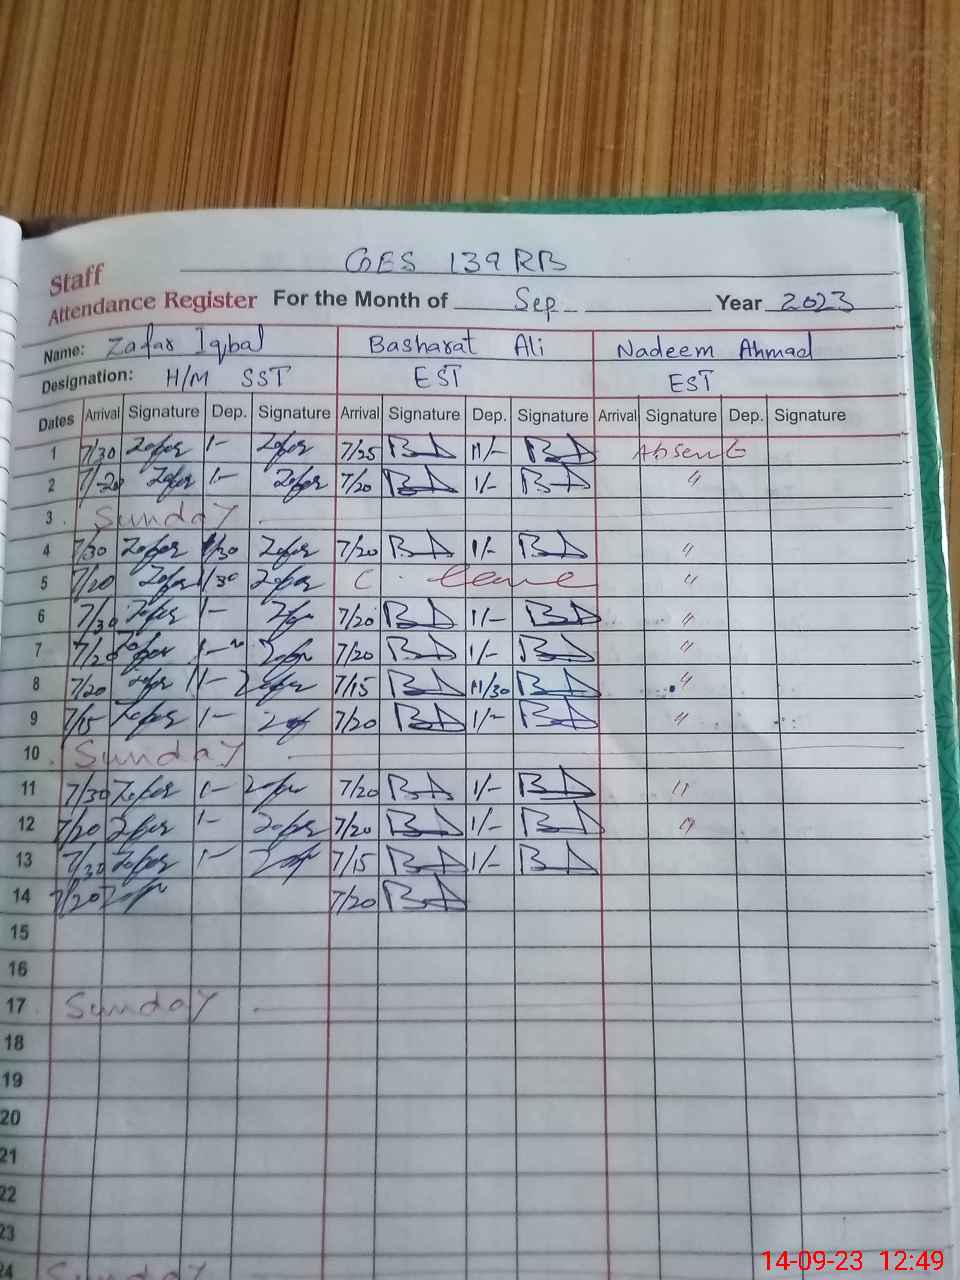 GES 139 RB
Staff
Attendance Register For the Month of Sep Year 2023
Name: Zafar Iqbal Basharat Ali Nadeem Ahmad
Designation: H/M SST EST EST
Dates Arrival Signature Dep. Signature Arrival Signature Dep. Signature Arrival Signature Dep. Signature
1 7/30 Zafar 1- Zafar 7/25 BA 11/- BA Absent
2 7/20 Zafar 1- Zafar 7/20 BA 1/- BA "
3 Sunday
4 7/30 Zafar 1/30 Zafar 7/20 BA 1/- BA "
5 7/20 Zafar 1/30 Zafar C. leave "
6 7/30 Zafar 1- Zafar 7/20 BA 1/- BA "
7 7/20 Zafar 1- Zafar 7/20 BA 1/- BA "
8 7/20 Zafar 11- Zafar 7/15 BA 11/30 BA "
9 7/15 Zafar 1- Zafar 7/20 BA 1/- BA "
10 Sunday
11 7/30 Zafar 1- Zafar 7/20 BA 1/- BA "
12 7/20 Zafar 1- Zafar 7/20 BA 1/- BA "
13 7/30 Zafar 1- Zafar 7/15 BA 1/- BA
14 7/20 Zafar 7/20 BA
15
16
17 Sunday
18
19
20
21
22
23
24 Sunday
14-09-23 12:49